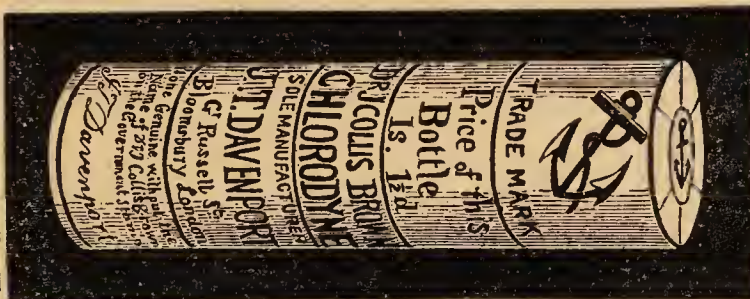 TRADE MARK
Price of this
Bottle
1s. 1½d
DR J COLLIS BROWN
CHLORODYNE
SOLE MANUFACTURER
J.T. DAVENPORT
Gt Russell St
Bloomsbury London
None Genuine without the
Name of Dr J Collis Brown
on the Government Stamp
Davenport